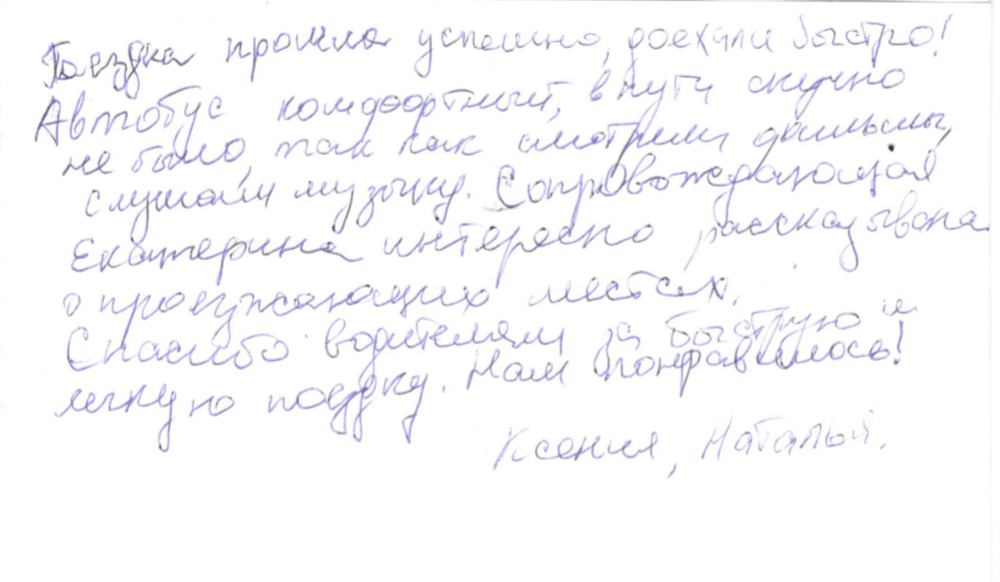 Поездка прошла успешно, доехали быстро!
Автобус комфортный, в пути скучно
не было, так как смотрели фильмы,
слушали музыку. Сопровождающая
Екатерина интересно рассказывала
о проезжающих местах.
Спасибо водителям за быструю и
легкую поездку. Нам понравилось!
Ксения, Наталья.